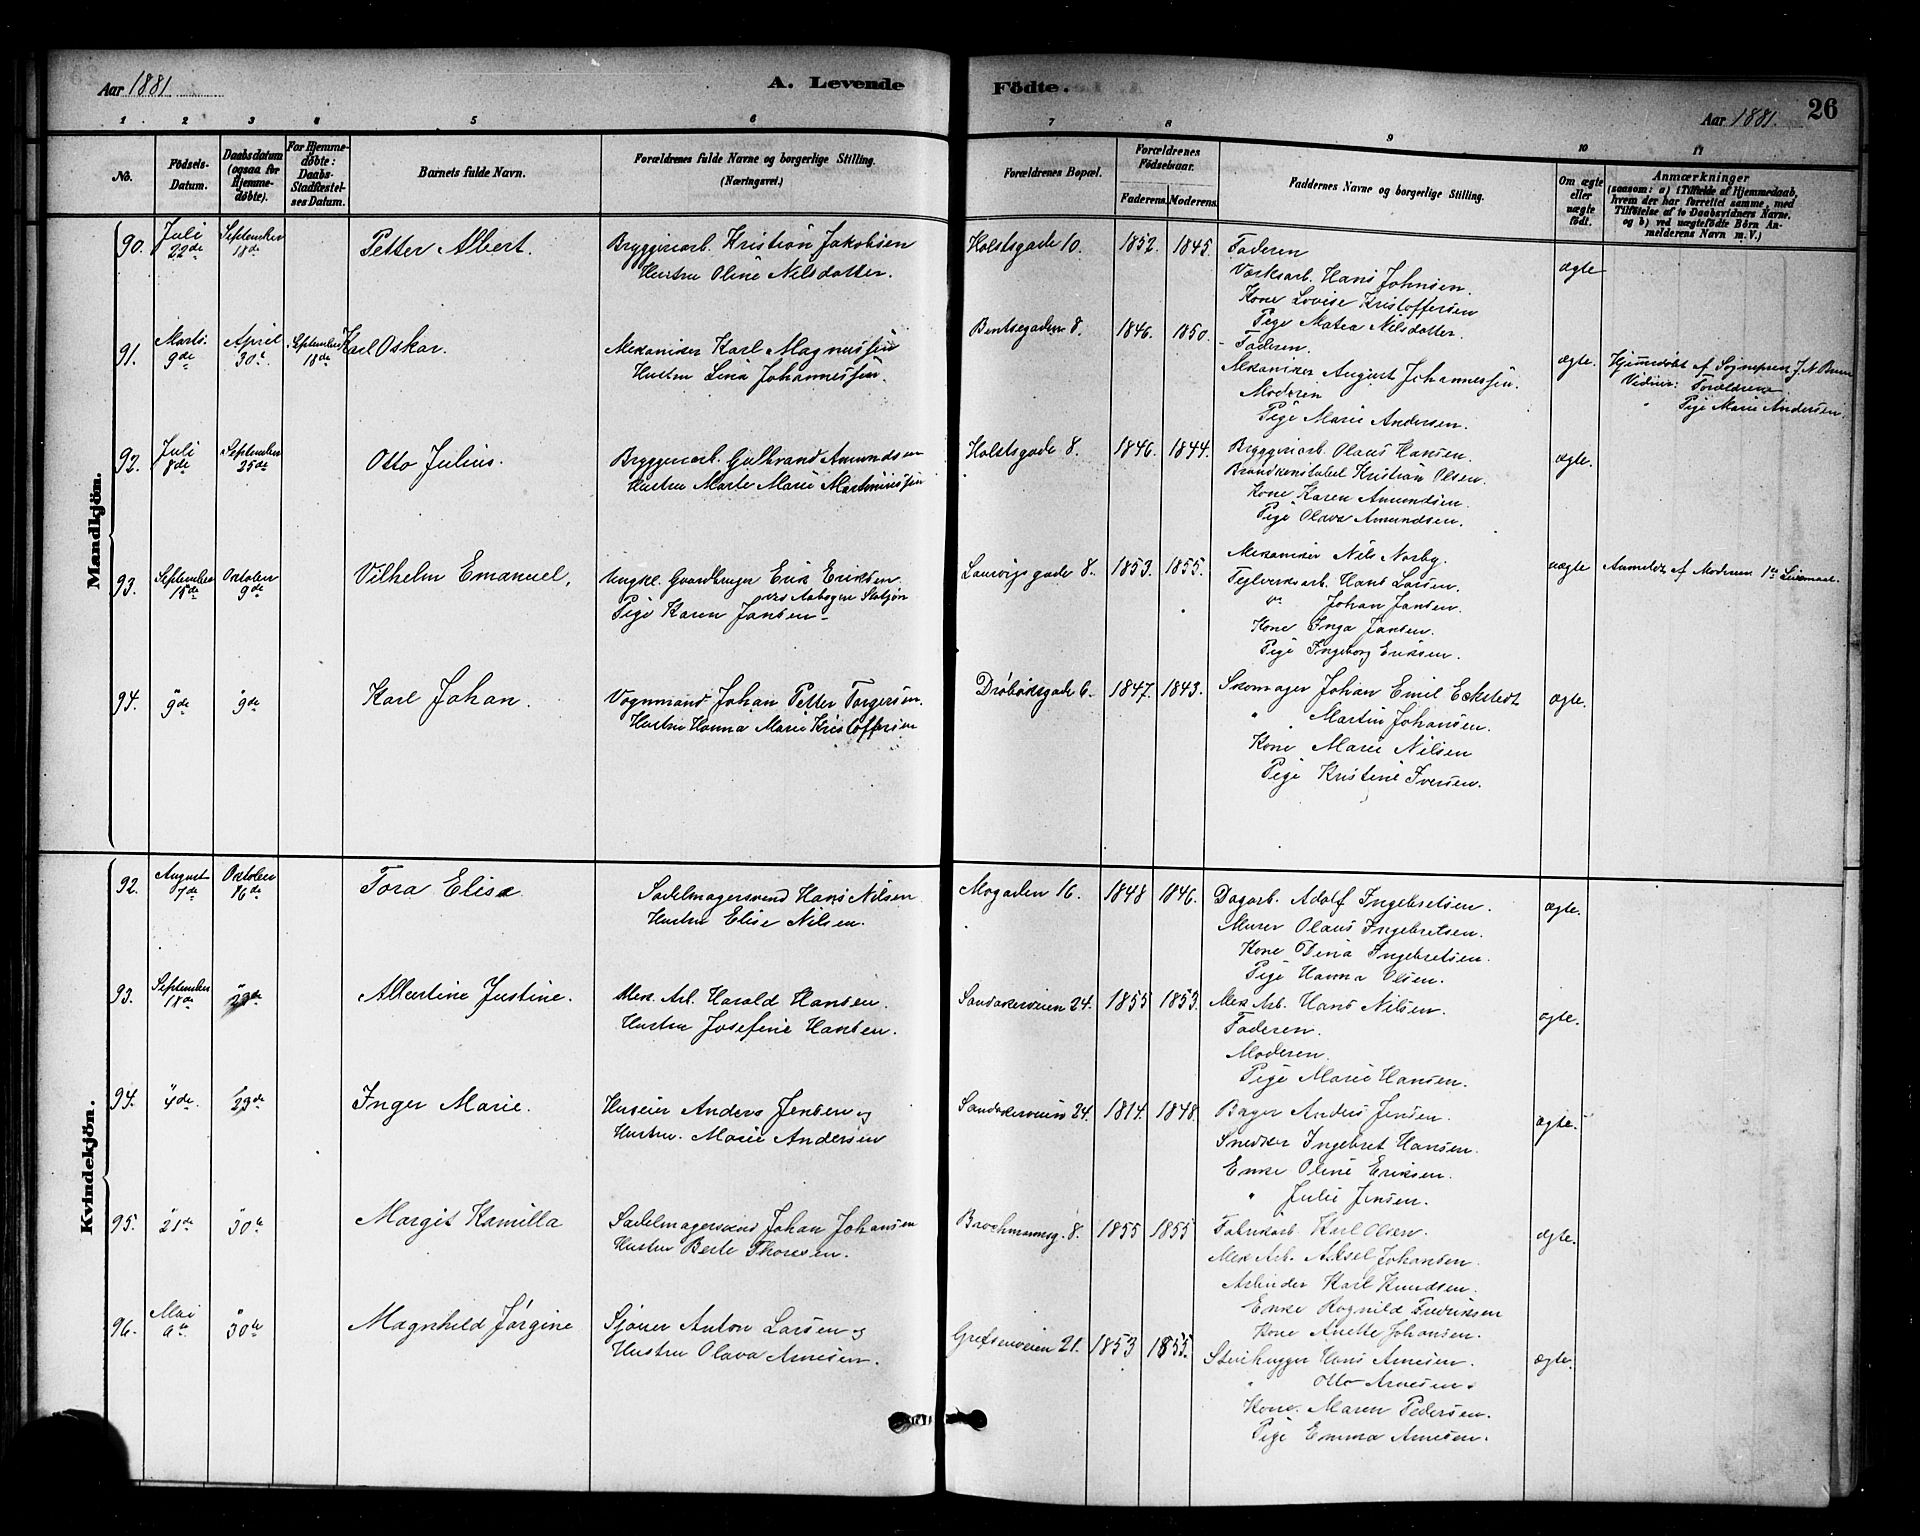 Aar 1881
A. Levende
Födte.
Aar 1881.
26
1 2 3 4 5 6 7 8 9 10 11
No.
Födsels-
Datum.
Daabsdatum
(ogsaa for
Hjemme-
döbte).
For Hjemme-
döbte:
Daabs-
Stadfæstel-
ses Datum.
Barnets fulde Navn.
Forældrenes fulde Navne og borgerlige Stilling.
(Næringsvei.)
Forældrenes Bopæl.
Forældrenes
Födselsaar.
Faderens. Moderens.
Faddernes Navne og borgerlige Stilling.
Om ægte
eller
uægte
födt.
Anmærkninger
(saasom: a) i Tilfælde af Hjemmedaab,
hvem der har forrettet samme, med
Tilföielse af to Daabsvidners Navne.
og b) ved uægtefödte Börn An-
melderens Navn m. V.)
Mandkjön.
90. Juli 22de September 18de Petter Albert. Bryggeriarb. Kristian Jakobsen
Hustru Oline Nilsdatter.
Holstsgade 10. 1852. 1845. Faderen
Værksarb. Hans Johnsen.
Kone Lovise Kristoffersen
Pige Matea Nilsdatter.
ægte
91. Marts 9de April 30te September 18de Karl Oskar. Mekaniker Karl Magnussen
Hustru Lina Johannessen.
Bentsegaden 8. 1846. 1850. Faderen.
Mekaniker August Johannessen.
Moderen
Pige Marie Andersen.
ægte. Hjemmedøbt af Sogneprest J. N. Brun
Vidner: Forældrene
" Pige Marie Andersen.
92. Juli 8de September 25de Otto Julius. Bryggeriarb. Gulbrand Amundsen
Hustru Marte Marie Martinussen
Holstsgade 8. 1846. 1844. Bryggeriarb. Olaus Hansen.
Brandkonstabel Kristian Olsen.
Kone Karen Amundsen.
Pige Olava Amundsen.
ægte.
93. September 15de Oktober 9de Vilhelm Emanuel. Ungkl. Gaardbruger Erik Eriksen.
Pige Karen Jansen
Laurvigsgade 8. 1853. 1855. Mekaniker Nils Norby.
Teglverksarb. Hans Larsen.
Do Johan Jansen.
Kone Inga Jansen.
Pige Ingeborg Eriksen.
uægte Anmeldt af Moderen 1ste Leiermaal.
94. " 9de " 9de Karl Johan. Vognmand Johan Petter Torgersen.
Hustru Hanna Marie Kristoffersen
Drøbaksgade 6. 1847. 1843. Skomager Johan Emil Eckstedt
" " Martin Johansen.
Kone Marie Nilsen
Pige Kristine Iversen.
ægte.
Kvindekjön.
92. August 7de Oktober 16de Tora Elise Sadelmagersvend Hans Nilsen
Hustru Elise Nilsen.
Mogaden 16. 1848 1846. Dagarb. Adolf Ingebretsen.
Murer Olaus Ingebretsen.
Kone Dina Ingebretsen.
Pige Hanna Olsen.
ægte.
93. September 18de " 23de Albertine Justine. Mek. Arb. Harald Hansen.
Hustru Josefine Hansen.
Sandakerveien 24. 1855 1853. Mek Arb. Hans Nilsen.
Faderen.
Moderen.
Pige Marie Hansen.
ægte.
94. " 4de " 23de Inger Marie. Huseier Anders Jensen og
Hustru. Marie Andersen
Sandakerveien 24. 1814. 1848. Bager Anders Jensen.
Snedker Ingebret Hansen.
Enke Oline Eriksen.
" Julie Jensen.
ægte.
95. " 21de " 30te Margit Kamilla Sadelmagersvend Johan Johansen
Hustru Berte Thoresen.
Brochmannsg. 8. 1855 1855 Fabrikarb. Karl Olsen.
Mek Arb. Aksel Johansen.
Arbeider Karl Knudsen.
Enke Ragnild Fredriksen
Kone Anette Johansen.
ægte.
96. Mai 9de " 30te Magnhild Jørgine Sjøuer Anton Larsen og
Hustru Olava Arnesen.
Grefsenveien 21. 1853 1855. Stenhugger Hans Arnesen.
" Otto Arnesen.
Kone. Maren Pedersen.
Pige Emma Arnesen.
ægte.